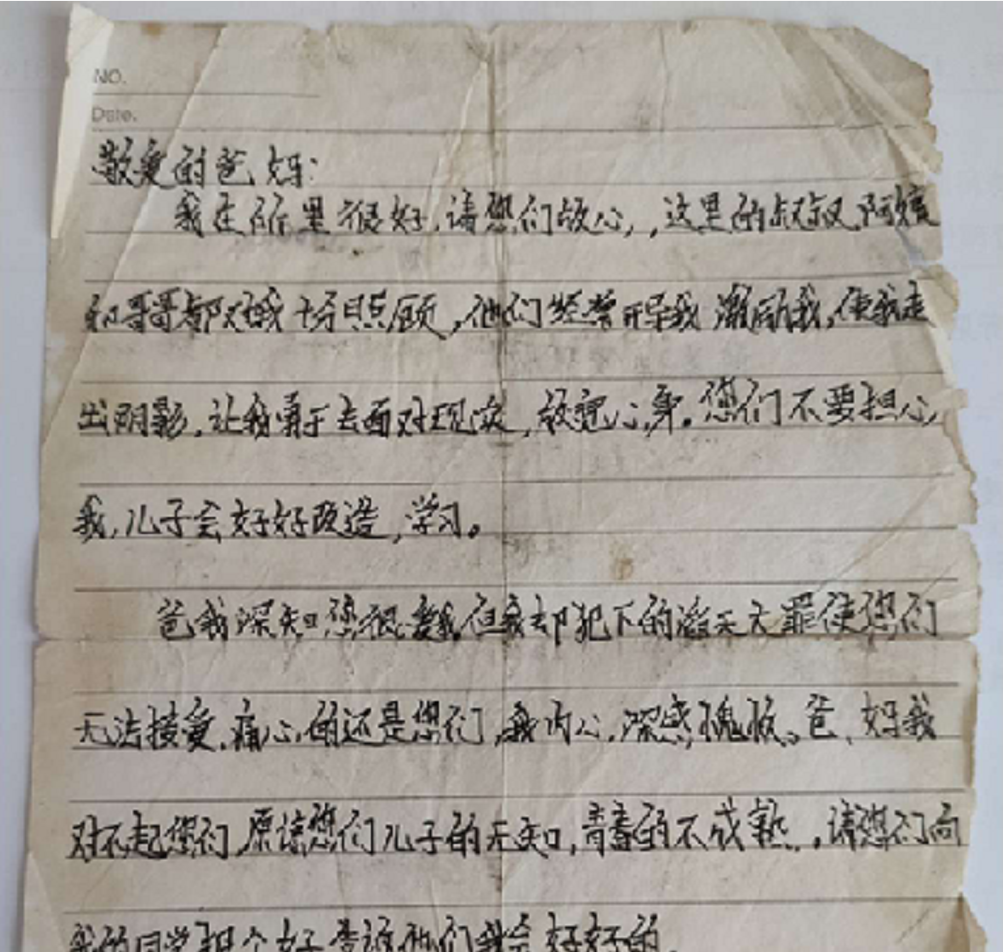 NO.
Date.
敬爱的爸妈:
我在所里很好,请您们放心,,这里的叔叔,阿姨
和哥哥都对我十分照顾,他们经常开导我 激励我,使我走
出阴影,让我勇于去面对现实,放宽心身。您们不要担心
我,儿子会好好改造,学习。
爸我深知您很爱我但我却犯下的滔天大罪使您们
无法接受,痛心的还是您们,我内心,深感愧疚。爸、妈我
对不起您们,原谅您们儿子的无知,青春的不成熟,,请您们向
我的同学担个好告诉他们我会好好的.